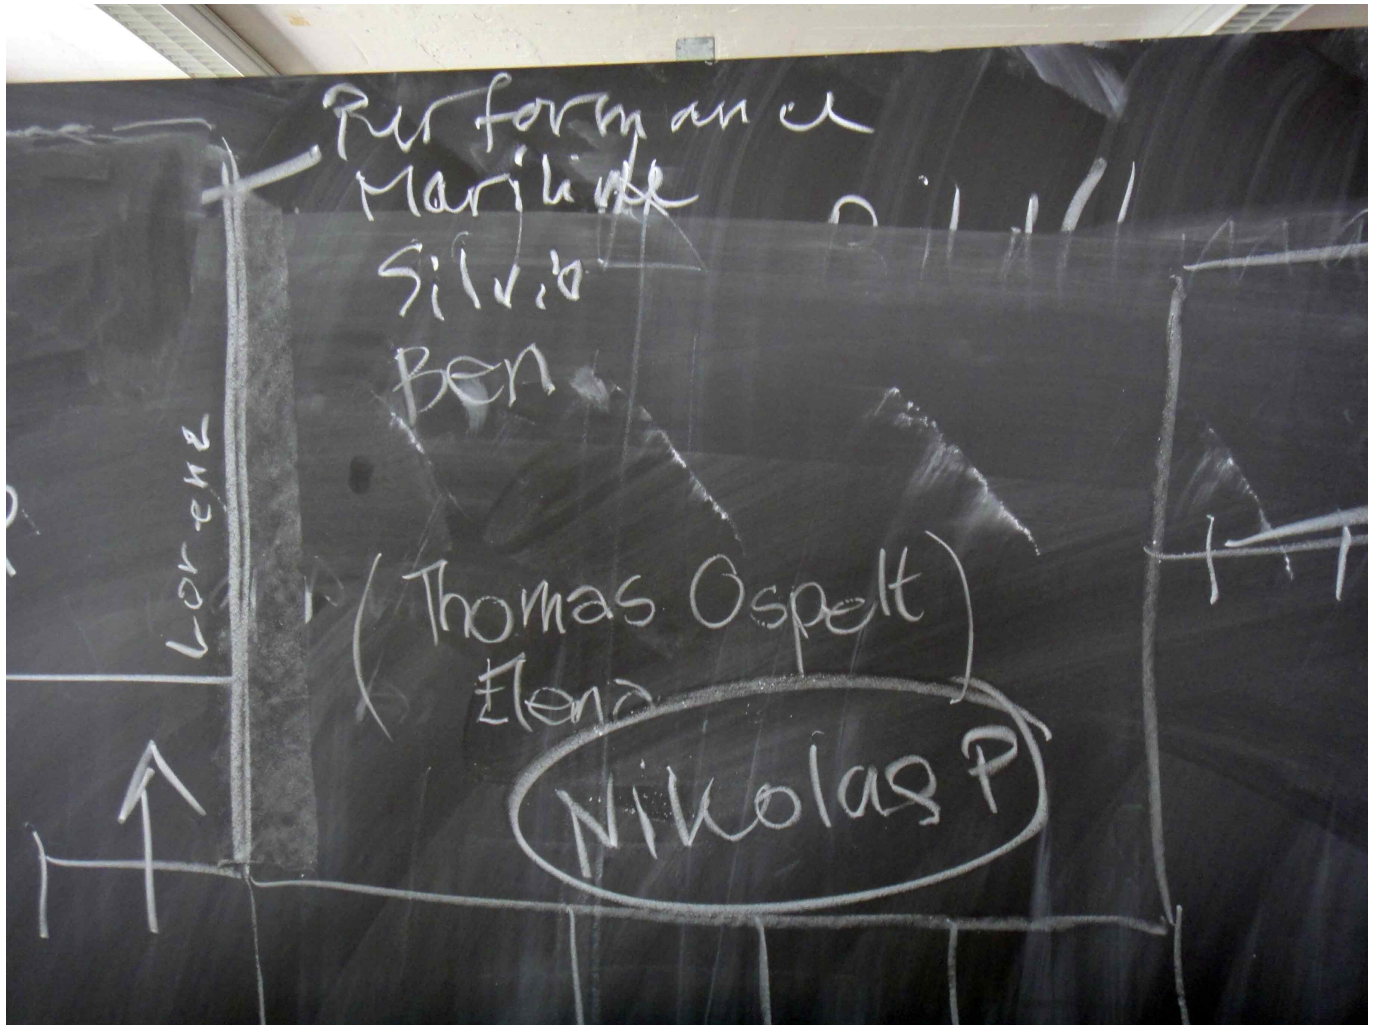 Performance
Silvio
Ben
Lorenz
(Thomas Ospelt)
Elena
Nikolas P